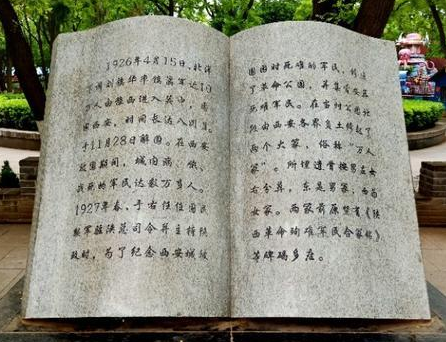 1926年4月15日，北洋
军阀刘镇华率镇嵩军达10
万人由豫西进入关中，围
困西安，时间长达八个月，
于11月28日解围。在西安
被围期间，城内病、饿、
战死的军民达数万人。
1927年春，于右任任国民
联军驻陕总司令并主持陕
政时，为了纪念西安城被
围困时死难的军民，修建
了革命公园，并集资安葬
死难军民。在当时公园北
段由西安各界负土修起了
两个大冢，俗称“万人
冢”。所埋遗骨按男左女
右合葬，东是男冢，西为
女冢。两冢前原竖有《陕
西革命殉难军民合冢碑》
等碑碣多座。